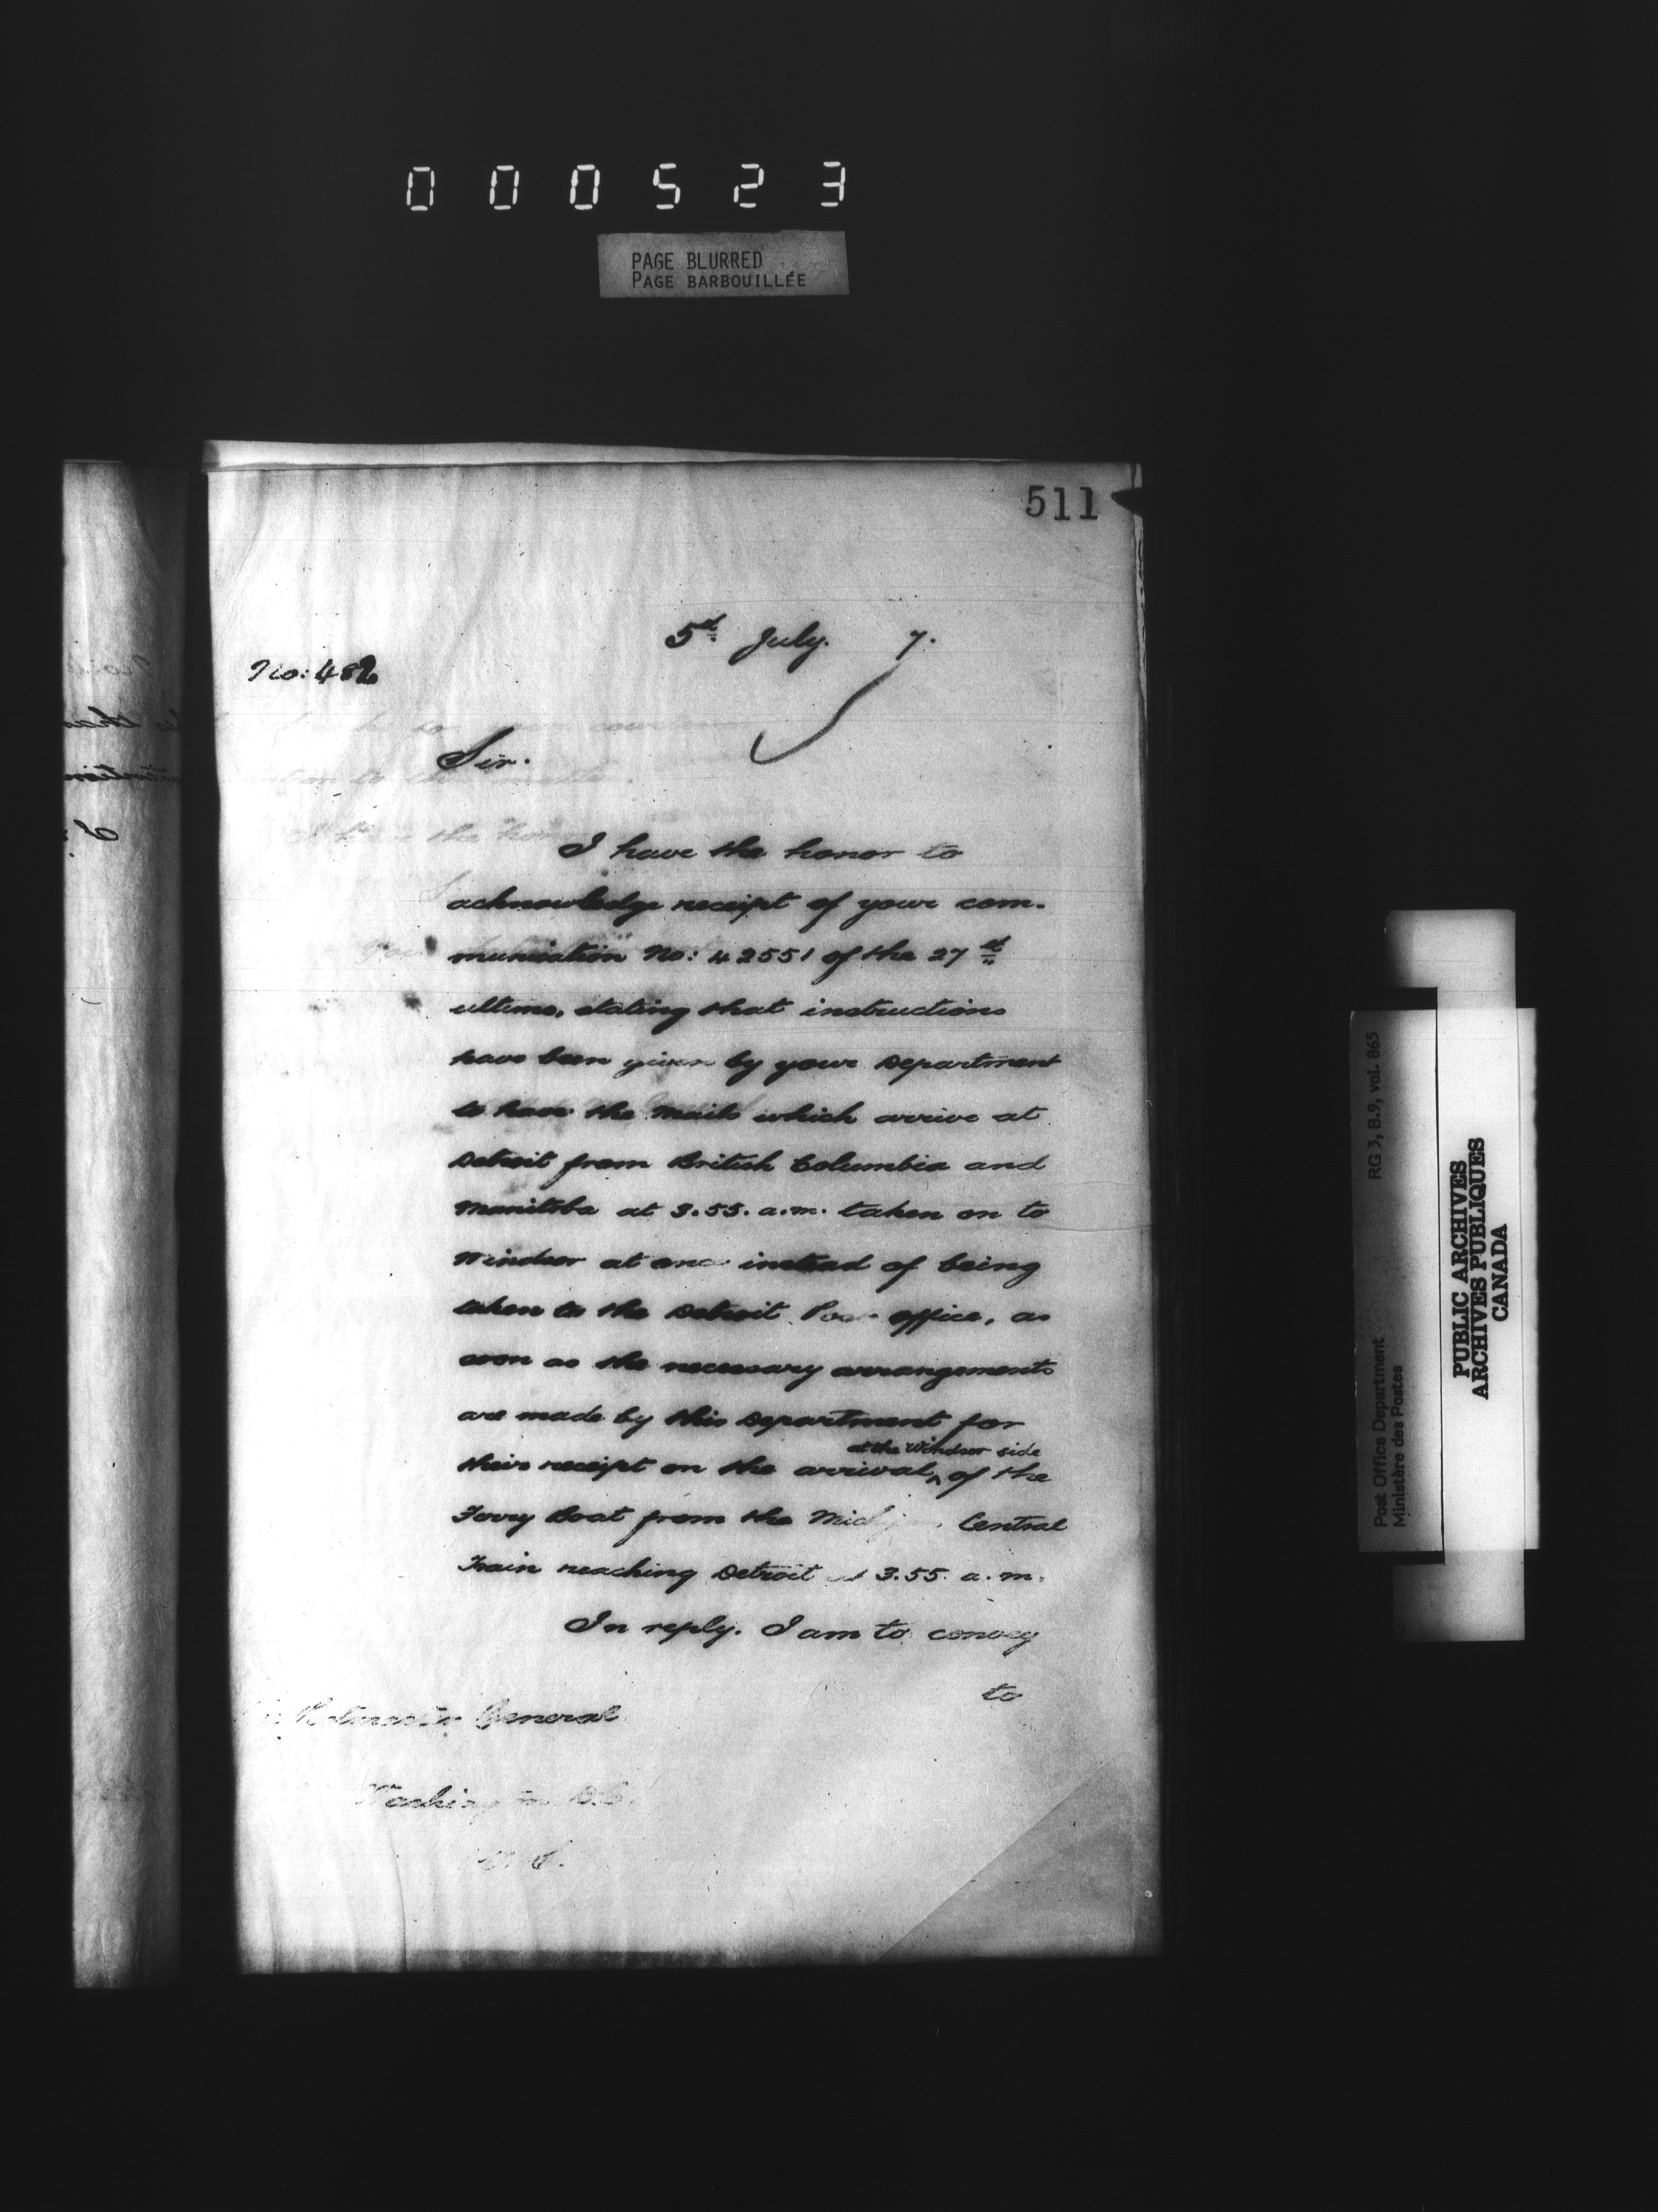 000523
PAGE BLURRED
PAGE BARBOUILLÉE
511
5th July. 7.
No: 482
Sir.
I have the honor to
acknowledge receipt of your com-
munication No: 42551 of the 27th
ultimo, stating that instructions
have been given by your Department
to have the Mails which arrive at
Detroit from British Columbia and
Manitoba at 3.55. a.m. taken on to
Windsor at once instead of being
taken to the Detroit Post office, as
soon as the necessary arrangements
are made by this Department for
at the Windsor side
their receipt on the arrival ^ of the
Ferry Boat from the Michigan Central
Train reaching Detroit at 3.55 a.m.
In reply. I am to convey
to
Postmaster General
Washington D.C.
RG 3, B.9, vol. 865
Post Office Department
Ministère des Postes
PUBLIC ARCHIVES
ARCHIVES PUBLIQUES
CANADA